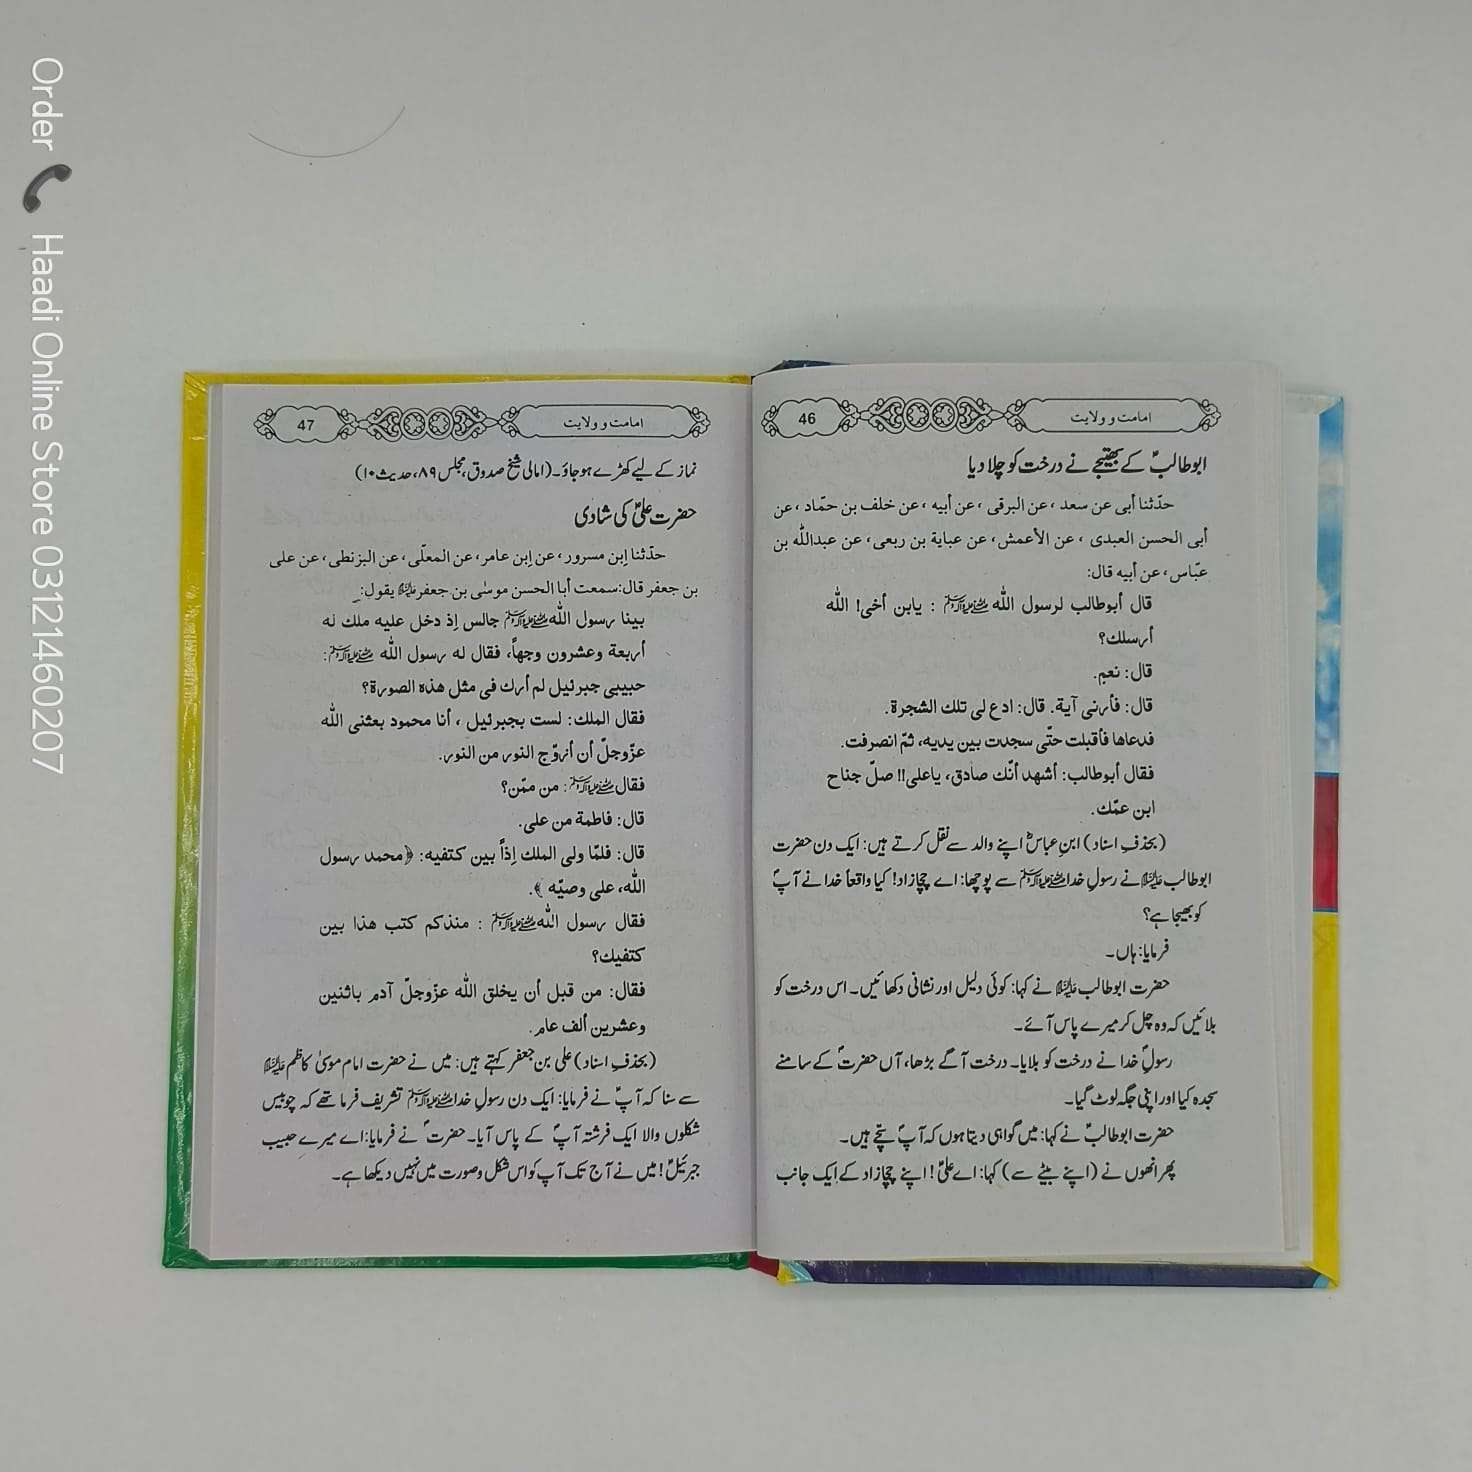 Order 📞 Haadi Online Store 03121460207
46
امامت و ولایت
ابوطالبؑ کے بھتیجے نے درخت کو چلا دیا
حدّثنا أبی عن سعد ، عن البرقی ، عن أبیه ، عن خلف بن حمّاد ، عن
أبی الحسن العبدی ، عن الأعمش، عن عبایة بن ربعی، عن عبدالله بن
عبّاس، عن أبیه قال:
قال أبوطالب لرسول الله ﷺ : یابن أخی! الله
أرسلك؟
قال: نعم.
قال: فأرنی آیة. قال: ادع لی تلك الشجرة.
فدعاها فأقبلت حتّی سجدت بین یدیه، ثمّ انصرفت.
فقال أبوطالب: أشهد أنّك صادق، یاعلی!! صلّ جناح
ابن عمّك.
(بحذفِ اسناد) ابنِ عباسؓ اپنے والد سے نقل کرتے ہیں: ایک دن حضرت
ابوطالب علیہ السلام نے رسولِ خدا ﷺ سے پوچھا: اے چچازاد! کیا واقعاً خدا نے آپؐ
کو بھیجا ہے؟
فرمایا: ہاں۔
حضرت ابوطالب علیہ السلام نے کہا: کوئی دلیل اور نشانی دکھائیں۔ اس درخت کو
بلائیں کہ وہ چل کر میرے پاس آئے۔
رسولِؐ خدا نے درخت کو بلایا۔ درخت آگے بڑھا، آں حضرتؐ کے سامنے
سجدہ کیا اور اپنی جگہ لوٹ گیا۔
حضرت ابوطالبؑ نے کہا: میں گواہی دیتا ہوں کہ آپؐ سچے ہیں۔
پھر انھوں نے (اپنے بیٹے سے) کہا: اے علیؑ! اپنے چچازاد کے ایک جانب
47
امامت و ولایت
نماز کے لیے کھڑے ہو جاؤ۔ (امالی شیخ صدوق، مجلس ۸۹، حدیث ۱۰)
حضرت علیؑ کی شادی
حدّثنا إبن مسرور ، عن إبن عامر، عن المعلّی، عن البزنطی، عن علی
بن جعفر قال:سمعت أبا الحسن موسٰی بن جعفر علیہ السلام یقول:
بینا رسول الله ﷺ جالس إذ دخل علیه ملك له
أربعة وعشرون وجهاً، فقال له رسول الله ﷺ:
حبیبی جبرئیل لم أرك فی مثل هذه الصورة؟
فقال الملك: لست بجبرئیل ، أنا محمود بعثنی الله
عزّوجلّ أن أزوّج النور من النور.
فقال ﷺ: من ممّن؟
قال: فاطمة من علی.
قال: فلمّا ولی الملك إذاً بین کتفیه: ﴿محمد رسول
الله، علی وصیّه ﴾.
فقال رسول الله ﷺ : منذکم کتب هذا بین
کتفیك؟
فقال: من قبل أن یخلق الله عزّوجلّ آدم باثنین
وعشرین ألف عام.
(بحذفِ اسناد) علی بن جعفر کہتے ہیں: میں نے حضرت امام موسیٰ کاظم علیہ السلام
سے سنا کہ آپؑ نے فرمایا: ایک دن رسولِ خدا ﷺ تشریف فرما تھے کہ چوبیس
شکلوں والا ایک فرشتہ آپؐ کے پاس آیا۔ حضرتؐ نے فرمایا: اے میرے حبیب
جبرئیلؑ! میں نے آج تک آپ کو اس شکل و صورت میں نہیں دیکھا ہے۔